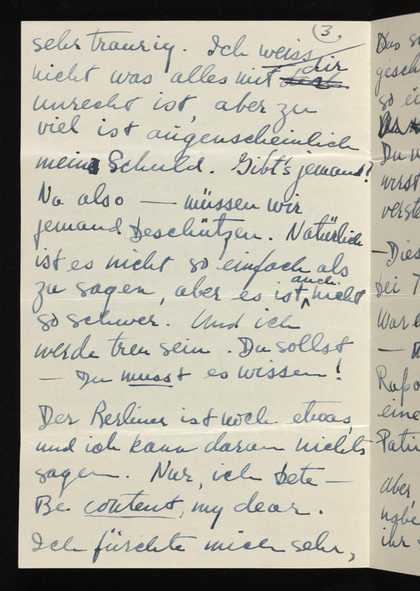 3.
sehr traurig. Ich weiss
nicht was alles mit dir
unrecht ist, aber zu
viel ist augenscheinlich
meine Schuld. Gibt's jemand?
Na also — müssen wir
jemand beschützen. Natürlich
ist es nicht so einfach als
zu sagen, aber es ist auch nicht
so schwer. Und ich
werde treu sein. Du sollst
— Du musst es wissen!
Der Berliner ist noch etwas,
und ich kann daran nichts
sagen. Nur, ich bete —
Be content, my dear.
Ich fürchte mich sehr,
Das
gesch
so
Du
wirst
verste
— Dies
sei
War
Rapo
eine
Patri
Aber,
habe
ihr